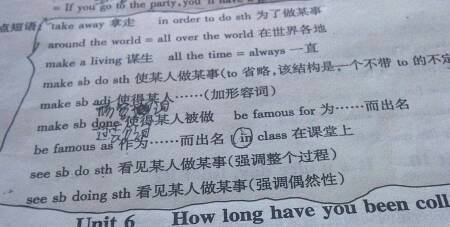 = If you go to the party, you'll have
点短语: take away 拿走 in order to do sth 为了做某事
around the world = all over the world 在世界各地
make a living 谋生 all the time = always 一直
make sb do sth 使某人做某事(to 省略,该结构是一个不带 to 的不定
make sb adj 使得某人……(加形容词)
make sb done 使得某人被做 be famous for 为……而出名
过去分词
be famous as 作为……而出名 in class 在课堂上
see sb do sth 看见某人做某事(强调整个过程)
see sb doing sth 看见某人做某事(强调偶然性)
Unit 6 How long have you been coll